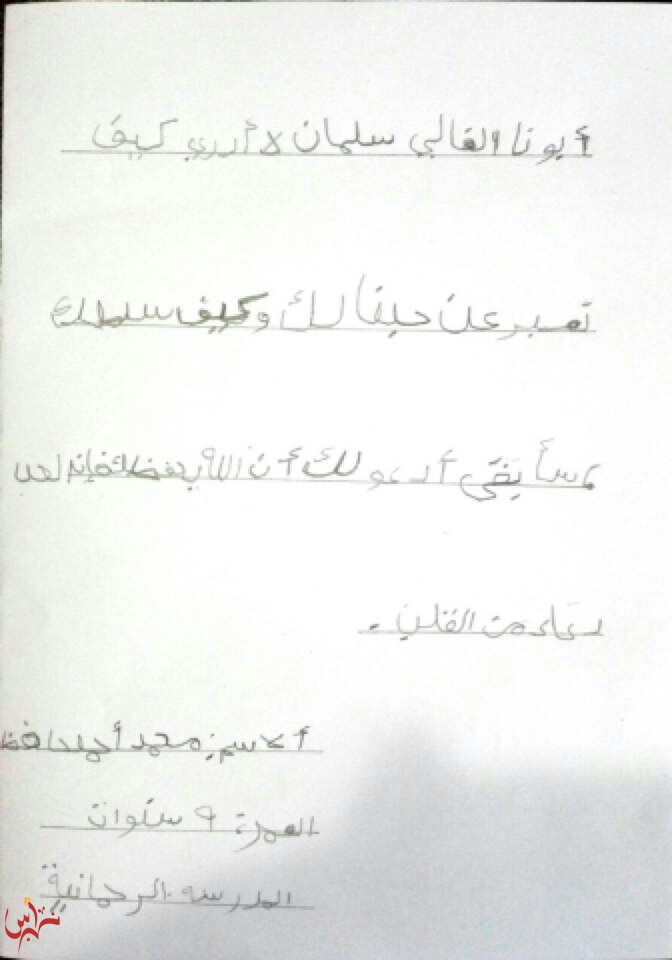 أبونا الغالي سلمان لا أدري كيف
نعبر عن حبنا لك وكيف
سأبقى أدعو لك أن الله يحفظك فإنه
دعاء من القلب.
ألاسم: محمد أحمد حافظ
العمر: ٩ سنوات
المدرسه الرحمانية